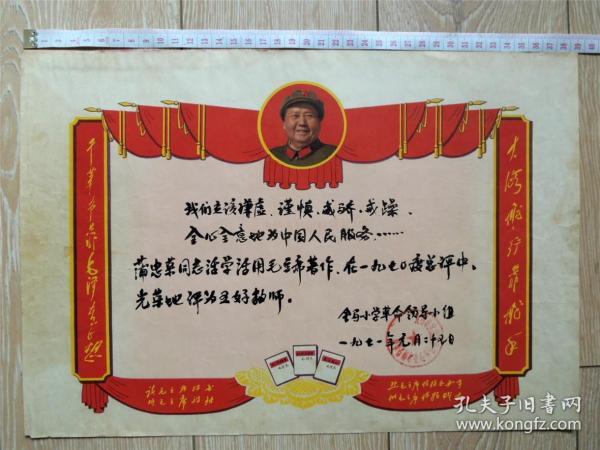 大海航行靠舵手
干革命靠毛泽东思想
我们应该谦虚、谨慎、戒骄、戒躁、
全心全意地为中国人民服务……
蒲忠英同志活学活用毛主席著作，在一九七〇年度总评中，
光荣地评为五好教师。
小学革命领导小组
一九七一年元月二十五日
读毛主席的书
听毛主席的话
照毛主席的指示办事
孔夫子旧书网
www.kongfz.com